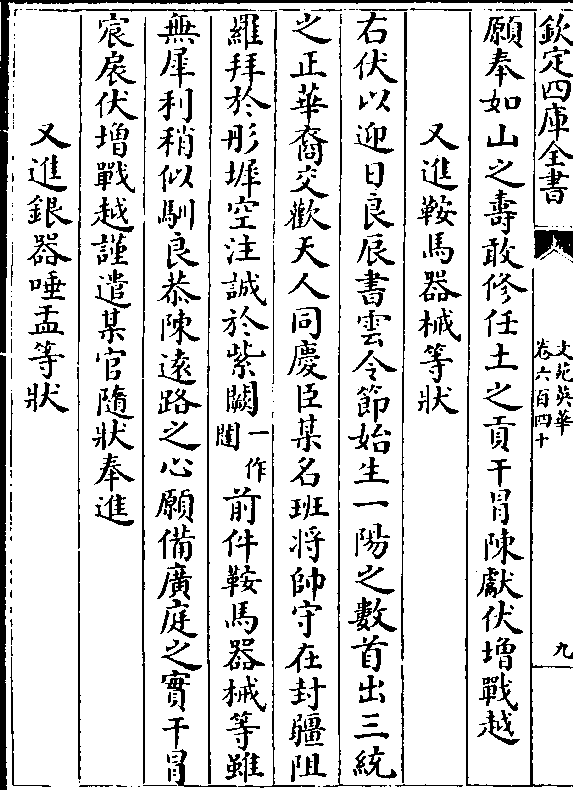 欽定四庫全書
文苑英華
卷六百四十
九
願奉如山之壽敢修任土之貢干冒陳獻伏增戰越
又進鞍馬器械等狀
右伏以迎日良辰書雲令節始生一陽之數首出三統
之正華裔交歡天人同慶臣某名班將帥守在封疆阻
羅拜於彤墀空注誠於紫闕一作闉前件鞍馬器械等雖
無犀利稍似馴良恭陳遠路之心願備廣庭之實干冒
宸扆伏增戰越謹遣某官隨狀奉進
又進銀器唾盂等狀